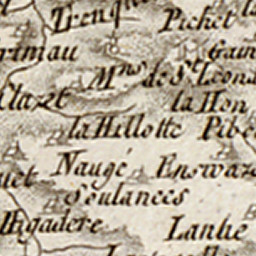 Trenqu
Pichet
rimau
Gain
Mns de St Leona
Clazet
la Hon
la Hillotte
Pibe
Naugé
Enswaze
uet
Soulances
Higadere
Lanhe